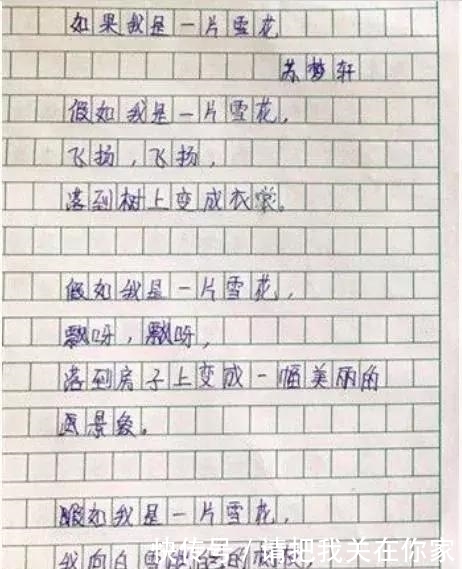 如果我是一片雪花
苏梦轩
假如我是一片雪花，
飞扬，飞扬，
落到树上变成衣裳。
假如我是一片雪花，
飘呀，飘呀，
落到房子上变成一幅美丽的
景象。
假如我是一片雪花，
快传号 / 请把我关在你家
我向白雪